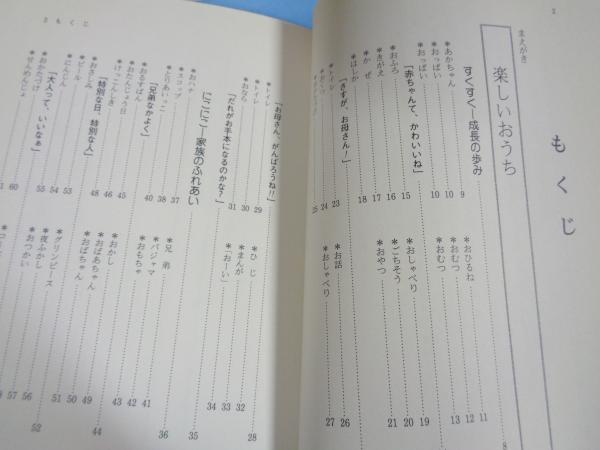 2
もくじ
まえがき
楽しいおうち 8
すくすく―成長の歩み
*あかちゃん 9
*おっぱい 10
*おっぱい
*おひるね 11
*おむつ 12
*おむつ 13
「赤ちゃんて、かわいいね」 15
*おふろ 16
*きがえ 17
*かぜ 18
*はしか
*おしゃべり 19
*ごちそう 20
*おやつ 21
「さすが、お母さん!」 23
*トイレ 24
25
*お話 26
*おしゃべり 27
3 もくじ
「お母さん、がんばろうね!!」 28
*トイレ 29
*おなら 30
「だれがお手本になるのかな?」 31
*ひじ 32
*まんが 33
*「おーい」 34
にこにこ―家族のふれあい 35
「兄弟なかよく」 36
*おハナ 37
*スコップ 38
*とりあいっこ 40
*おるすばん
*兄弟 41
*パジャマ 42
*おもちゃ 43
「特別な日、特別な人」 44
*おたんじょう日 45
*けっこんしき 46
*おさしみ 48
*おかし 49
*おばあちゃん 50
*おばちゃん 51
「大人って、いいなぁ」 52
*ビール 53
*にんじん 54
*おかたづけ 55
*せんめんじょ 60
*グリンピース 56
*夜ふかし 57
*おつかい